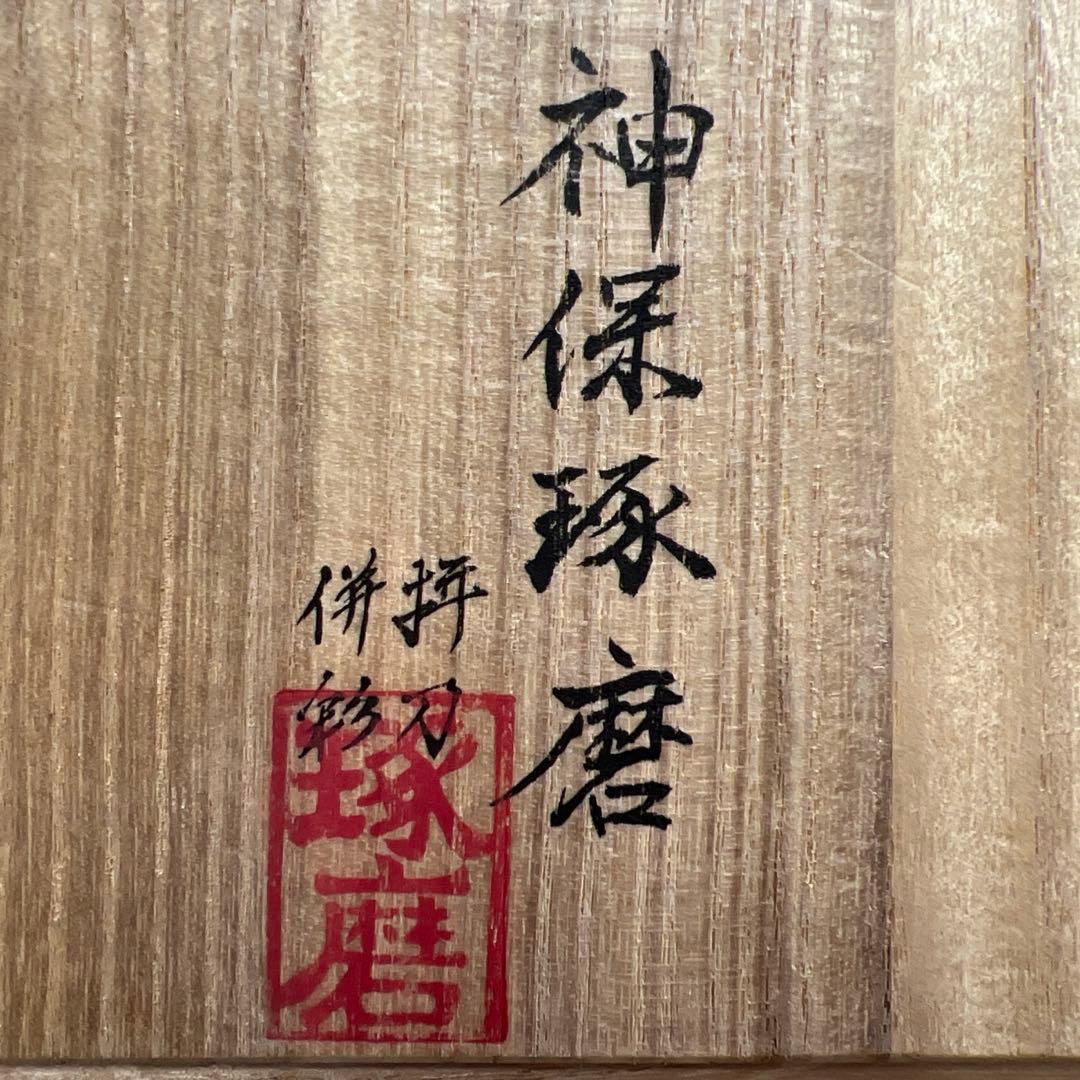 神保琢磨
拝刀
併彩
琢磨